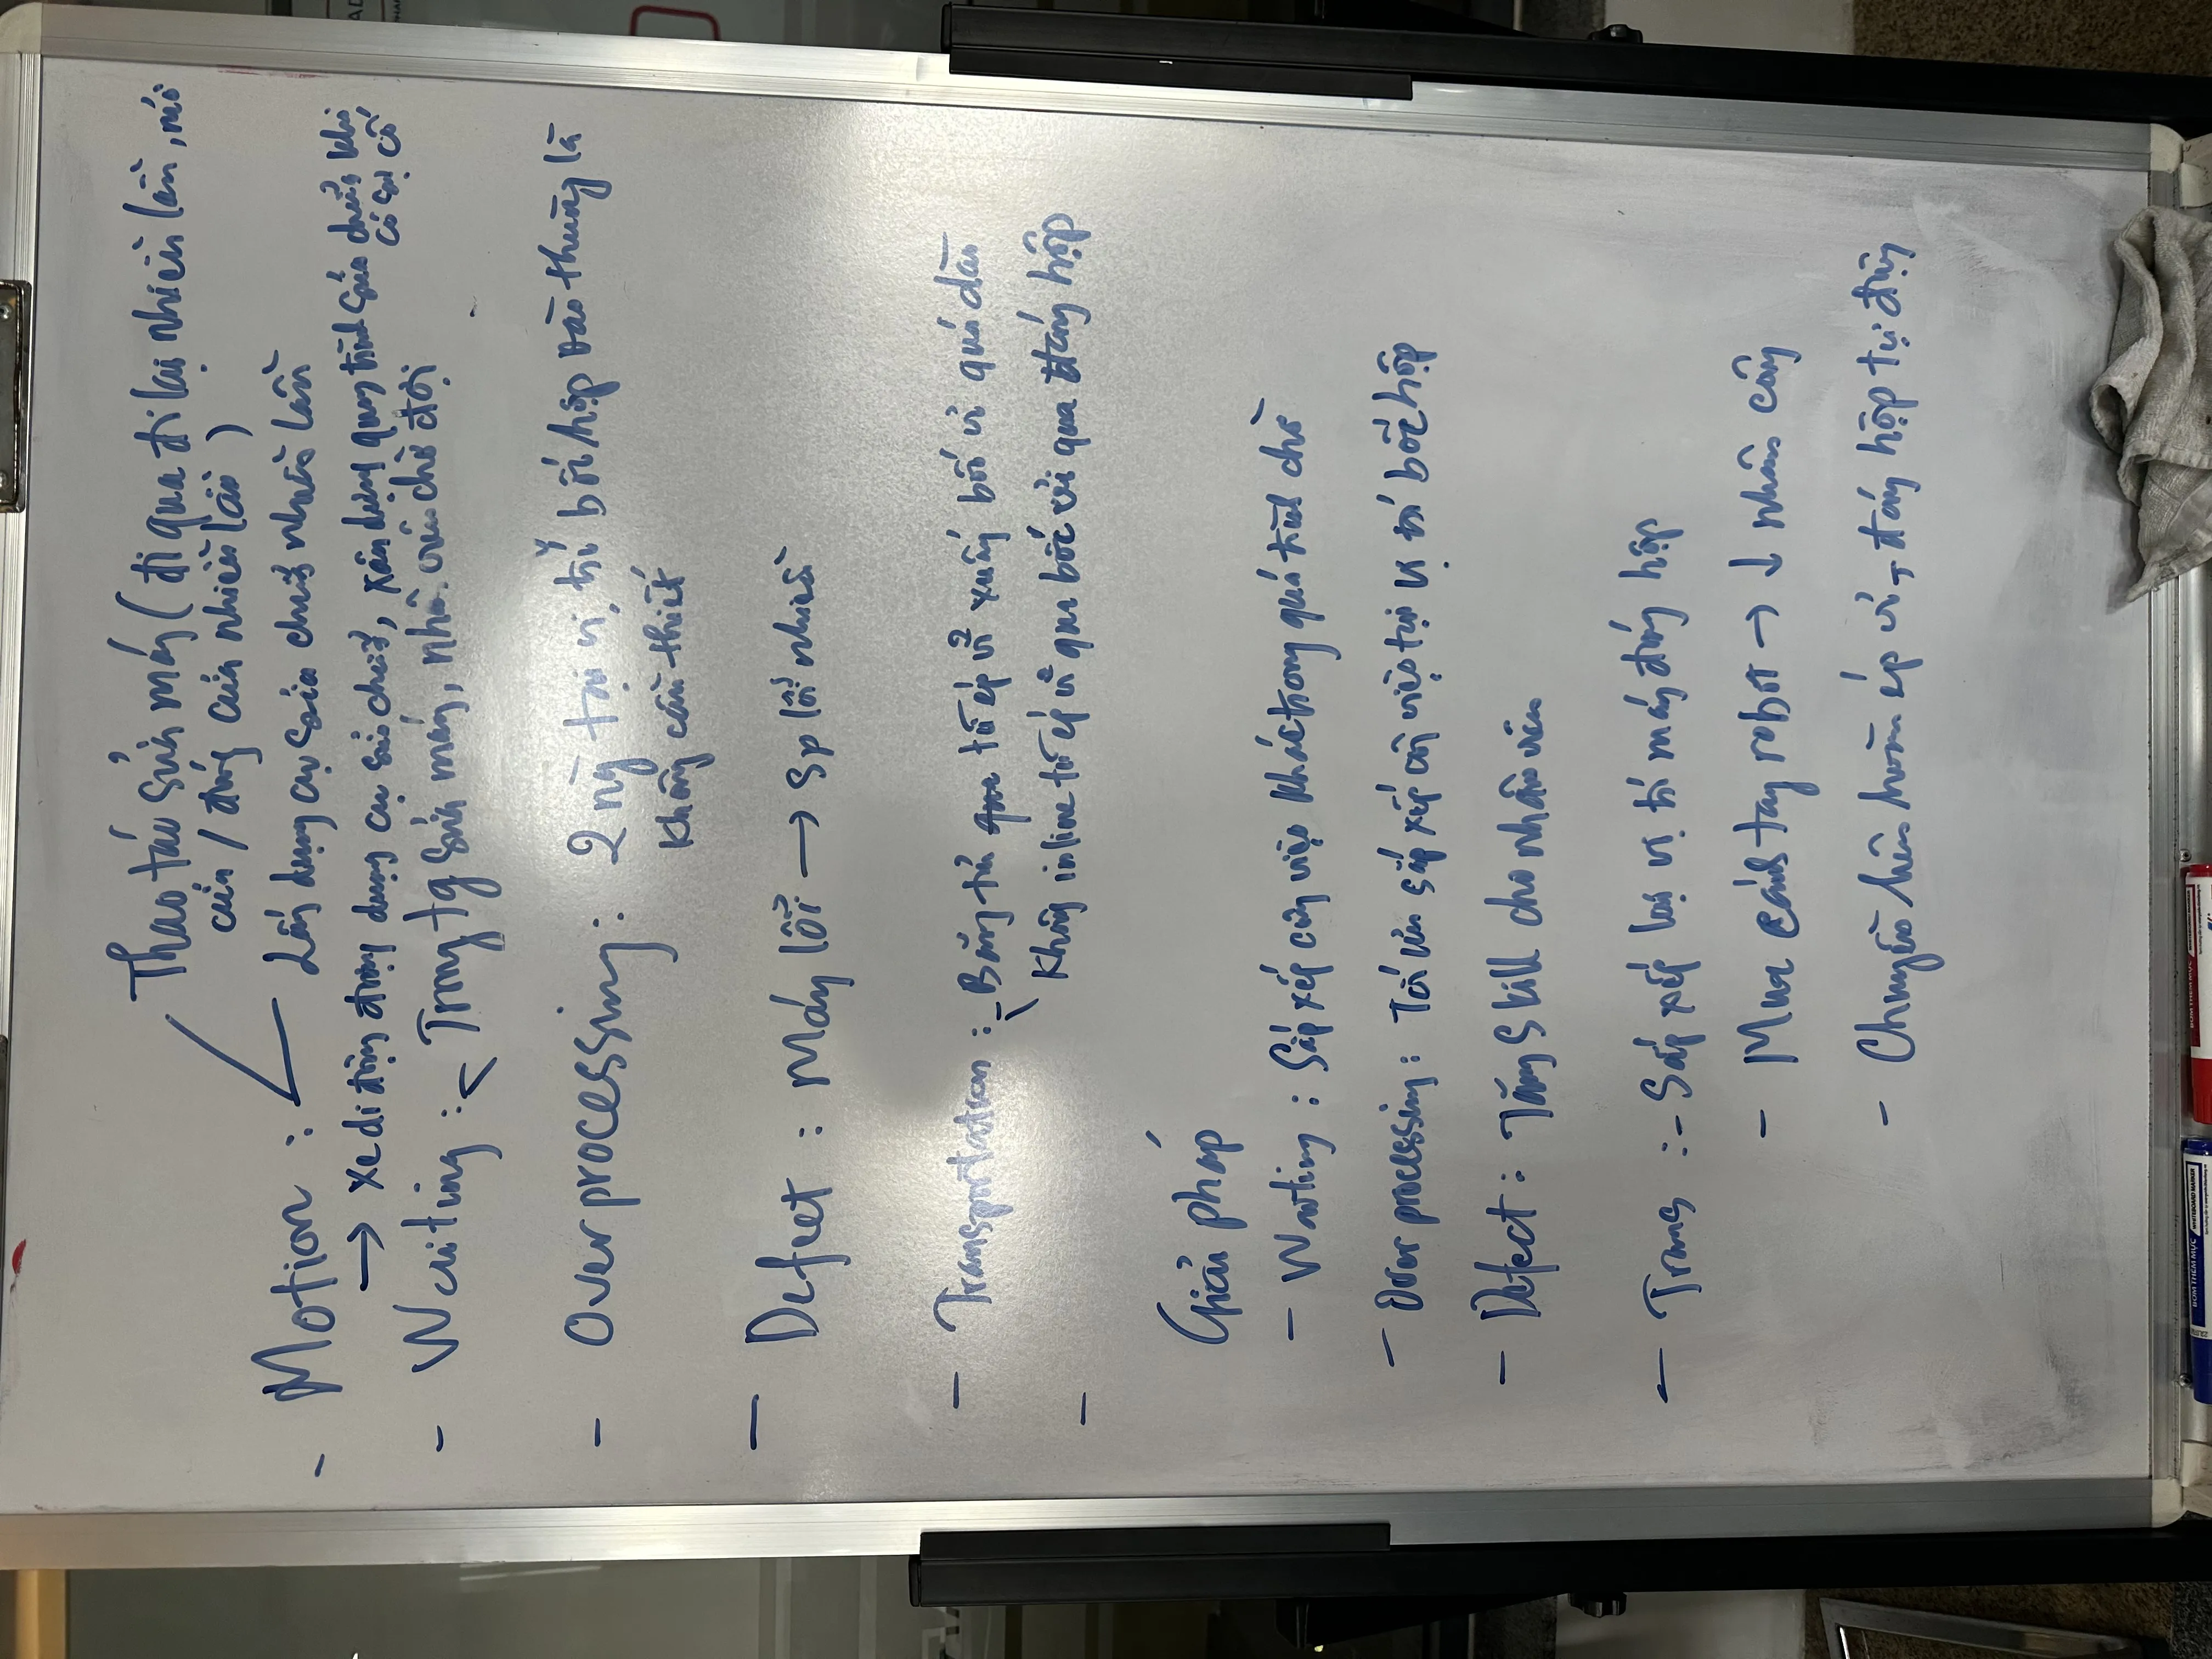 Thao tác sửa máy ( đi qua đi lại nhiều lần, mở
cửa / đóng cửa nhiều lần )
- Motion :
Lấy dụng cụ sửa chữa nhiều lần
→ xe di động đựng dụng cụ sửa chữa, xây dựng quy trình sửa chữa khi
có sự cố
- Waiting : Trong tg sửa máy, nhân viên chờ đợi
- Overprocessing : 2 ng tại vị trí bốc hộp vào thùng là
không cần thiết
- Defect : Máy lỗi → sp lỗi nhiều
- Transportation : - Băng tải từ ép vỉ xuống bốc vỉ quá dài
Không inline từ ép vỉ qua bốc vỉ qua đóng hộp
-
Giải pháp
- Waiting : Sắp xếp công việc khác trong quá trình chờ
- Overprocessing : Tái sắp xếp công việc tại vị trí bốc hộp
- Defect : Tăng skill cho nhân viên
- Trans : - Sắp xếp lại vị trí máy đóng hộp
- Mua cánh tay robot → ↓ nhân công
- Chuyền ép vỉ, đóng hộp tự động